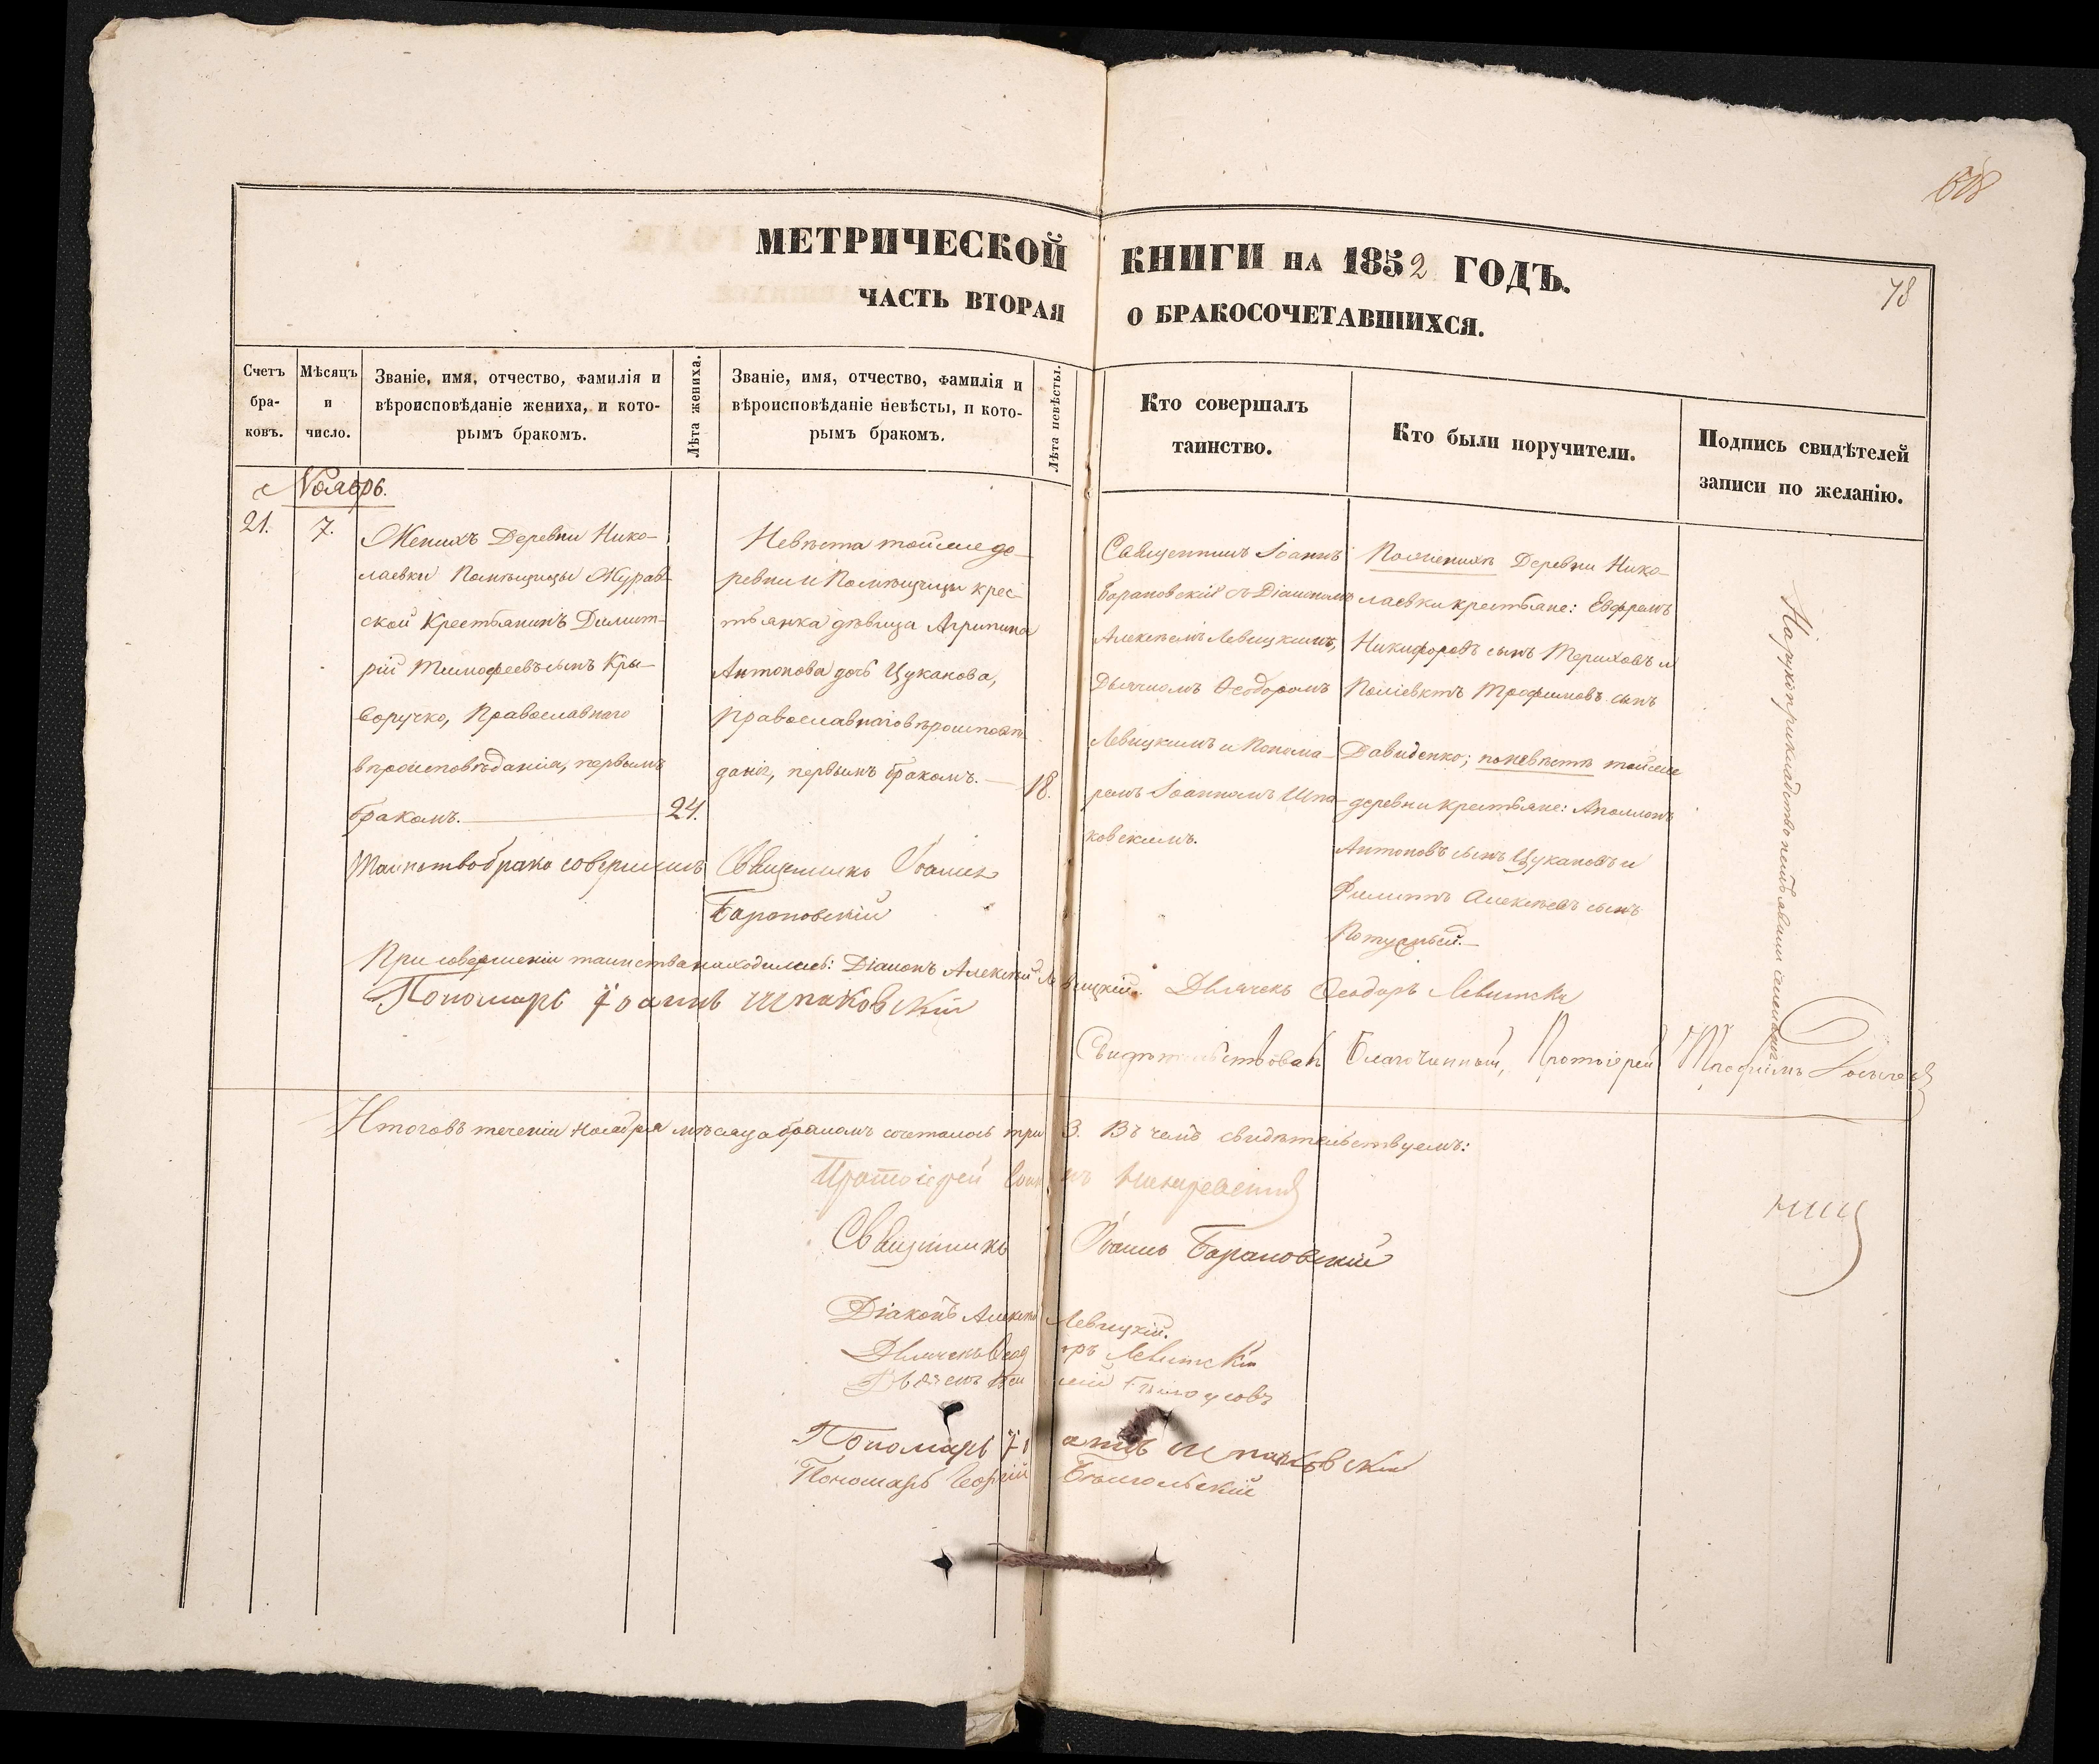 78
МЕТРИЧЕСКОЙ КНИГИ НА 1852 ГОДЪ.
ЧАСТЬ ВТОРАЯ О БРАКОСОЧЕТАВШИХСЯ.
Счетъ бра- ковъ.
Мѣсяцъ и число.
Званіе, имя, отчество, фамилія и
вѣроисповѣданіе жениха, и кото-
рымъ бракомъ.
Лѣта жениха.
Званіе, имя, отчество, фамилія и
вѣроисповѣданіе невѣсты, и кото-
рымъ бракомъ.
Лѣта невѣсты.
Кто совершалъ
таинство.
Кто были поручители.
Подпись свидѣтелей
записи по желанію.
Ноябрь.
21.
7.
Женихъ Деревни Нико-
лаевки Помѣщицы Журав-
ской Крестьянинъ Димит-
рій Тимофеевъ сынъ Кры-
воручко, Православнаго
вѣроисповѣданія, первымъ
бракомъ.
24.
Невѣста тойже де-
ревни и Помѣщицы крес-
тьянка дѣвица Агрипина
Антонова дочь Цуканова,
православнаго вѣроисповѣ-
данія, первымъ бракомъ.
18.
Священникъ Іоаннъ
Барановскій съ Діакономъ
Алексѣемъ Левицкимъ,
Дьячкомъ Ѳеодоромъ
Левицкимъ и Понома-
ремъ Іоанномъ Шпа-
ковскимъ.
По женихѣ Деревни Нико-
лаевки крестьяне: Евфремъ
Никифоровъ сынъ Териховъ и
Поліевктъ Трофимовъ сынъ
Давиденко; по невѣстѣ тойже
деревни крестьяне: Аполлонъ
Антоновъ сынъ Цукановъ и
Филиппъ Алексѣевъ сынъ
Таинство брака совершилъ Священникъ Іоаннъ
Барановскій
При совершеніи таинства находились: Діаконъ Алексѣй Левицкій. Дьячекъ Ѳеодоръ Левитскій
Пономарь Іоаннъ Шпаковскій
Свидѣтельствовалъ Благочинный, Протоіерей Трофимъ
Итого въ теченіи Ноября мѣсяца бракомъ сочеталось три 3. Въ чемъ свидѣтельствуемъ:
Протоіерей
Священникъ Іоаннъ Барановскій
Діаконъ Алексѣй Левицкій.
Дьячекъ Ѳеодоръ Левитскій
Пономарь Іоаннъ Шпаковскій
Пономарь Георгій